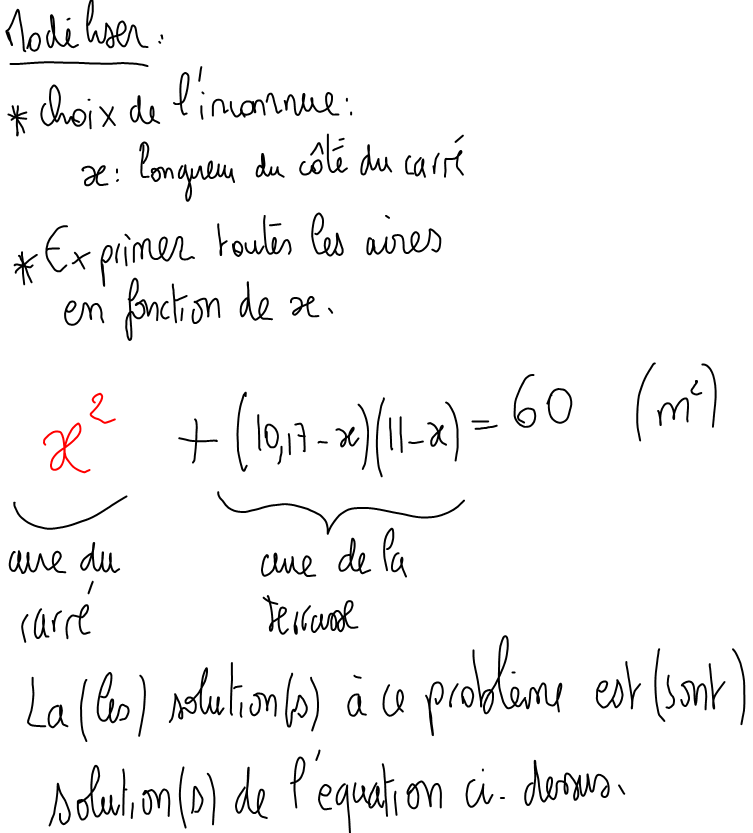 Modéliser.
* Choix de l'inconnue:
x: longueur du côté du carré
* Exprimer toutes les aires
en fonction de x.
x² + (10,17-x)(11-x) = 60 (m²)
aire du aire de la
carré terrasse
La (les) solution(s) à ce problème est (sont)
solution(s) de l'équation ci-dessus.